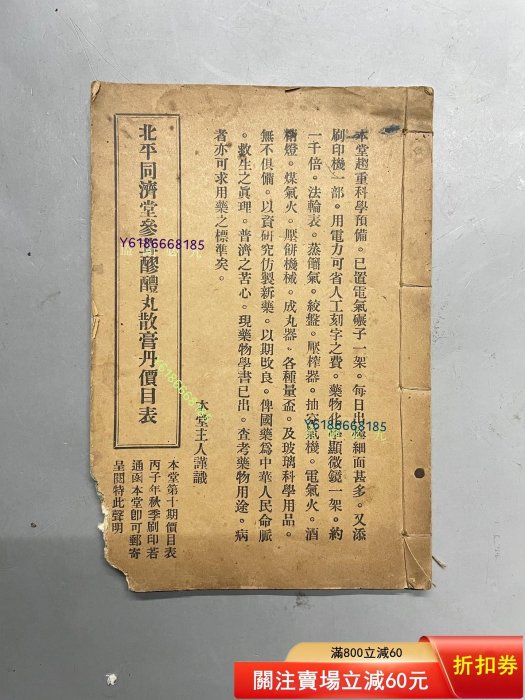 本堂趨重科學預備。已置電氣碾子一架。每日出極細面甚多。又添
刷印機一部。用電力可省人工刻字之費。藥物化學顯微鏡一架。約
一千倍。法輪表。蒸餾氣。絞盤。壓榨器。抽空氣機。電氣火。酒
精燈。煤氣火。壓餅機械。成丸器。各種量盃。及玻璃科學用品。
無不俱備。以資研究仿製新藥。以期改良。俾國藥爲中華人民命脈
。救生之眞理。普濟之苦心。現藥物學書已出。查考藥物用途。病
者亦可求用藥之標準矣。
本堂主人謹識
北平同濟堂參茸醪醴丸散膏丹價目表
本堂第十期價目表
丙子年秋季刷印若
通函本堂卽可郵寄
呈閱特此聲明
Y6186668185
Y6186668185
滿800立減60
關注賣場立減60元
折扣券